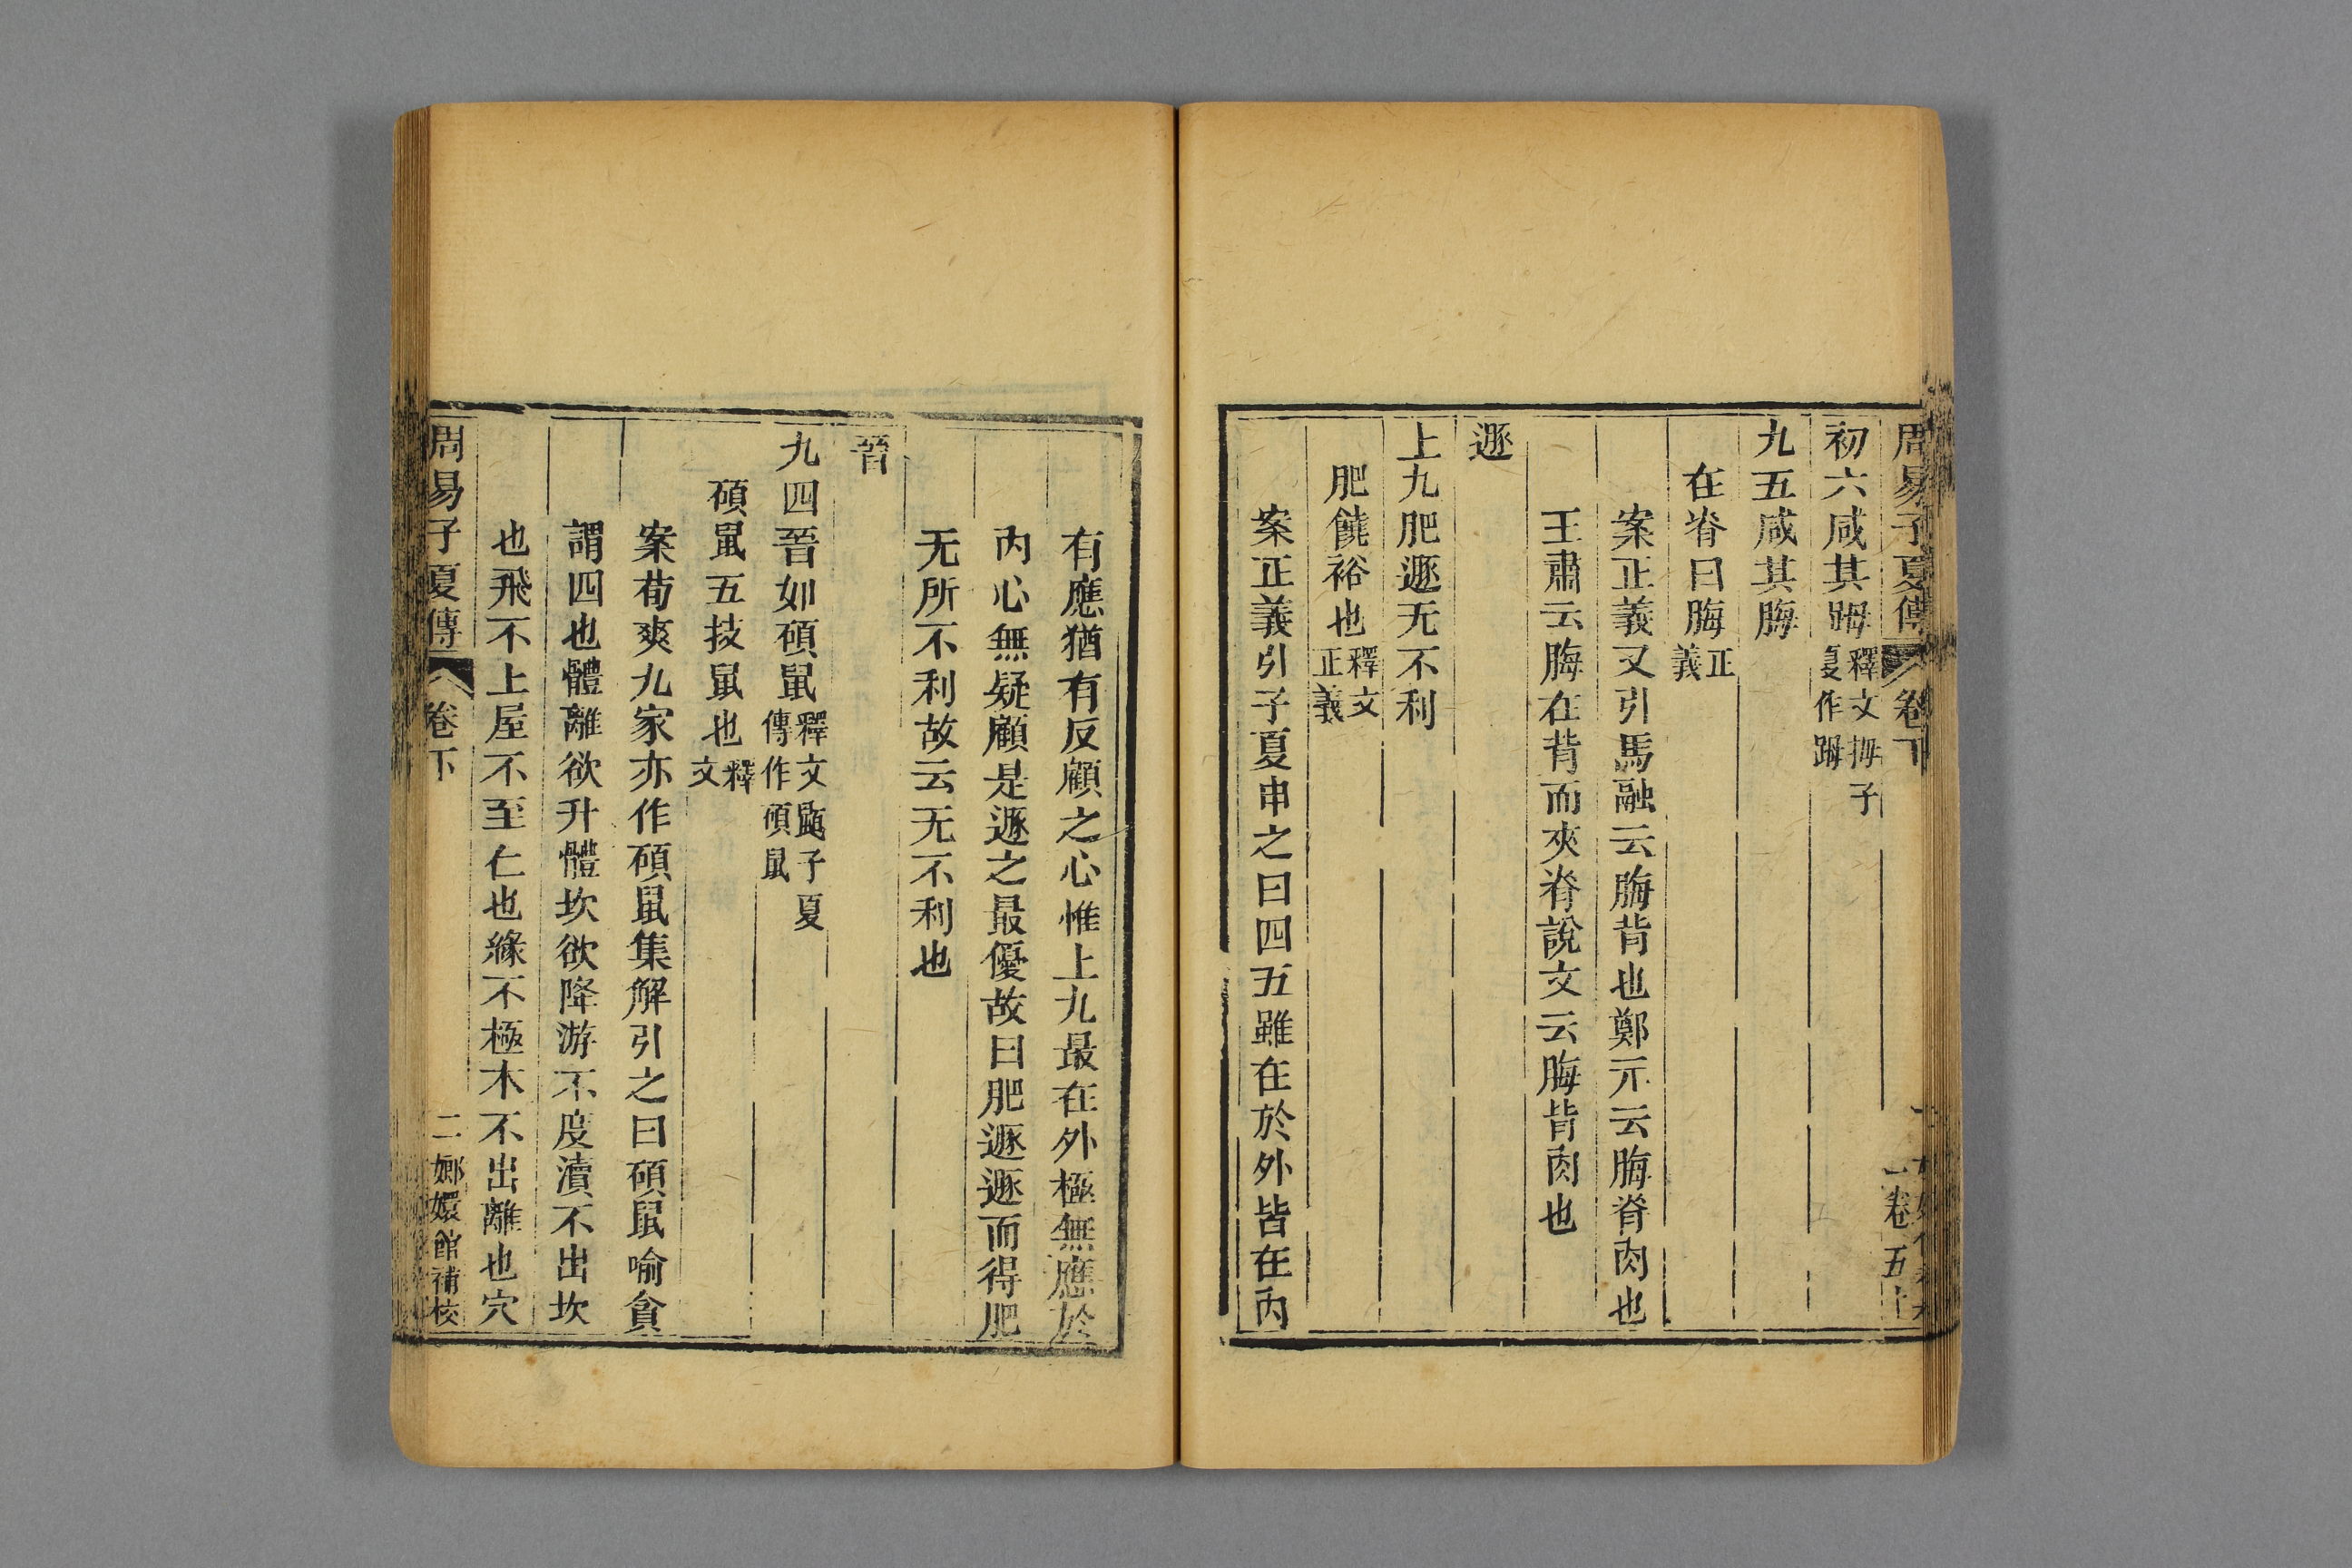 周易子夏傳 卷下
初六咸其𨈭釋文拇子夏作𨈭
九五咸其脢
在脊曰脢正義
案正義又引馬融云脢背也鄭𠀇云脢脊肉也
王肅云脢在背而夾脊說文云脢背肉也
遯
上九肥遯无不利
肥饒裕也釋文正義
案正義引子夏申之曰四五雖在於外皆在內
有應猶有反顧之心惟上九最在外極無應於
內心無疑顧是遯之最優故曰肥遯遯而得肥
无所不利故云无不利也
晉
九四晉如碩鼠釋文鼫子夏傳作碩鼠
碩鼠五技鼠也釋文
案荀爽九家亦作碩鼠集解引之曰碩鼠喻貪
謂四也體離欲升體坎欲降游不度瀆不出坎
也飛不上屋不至仁也緣不極木不出離也穴
周易子夏傳 卷下 二 嫏嬛館補校